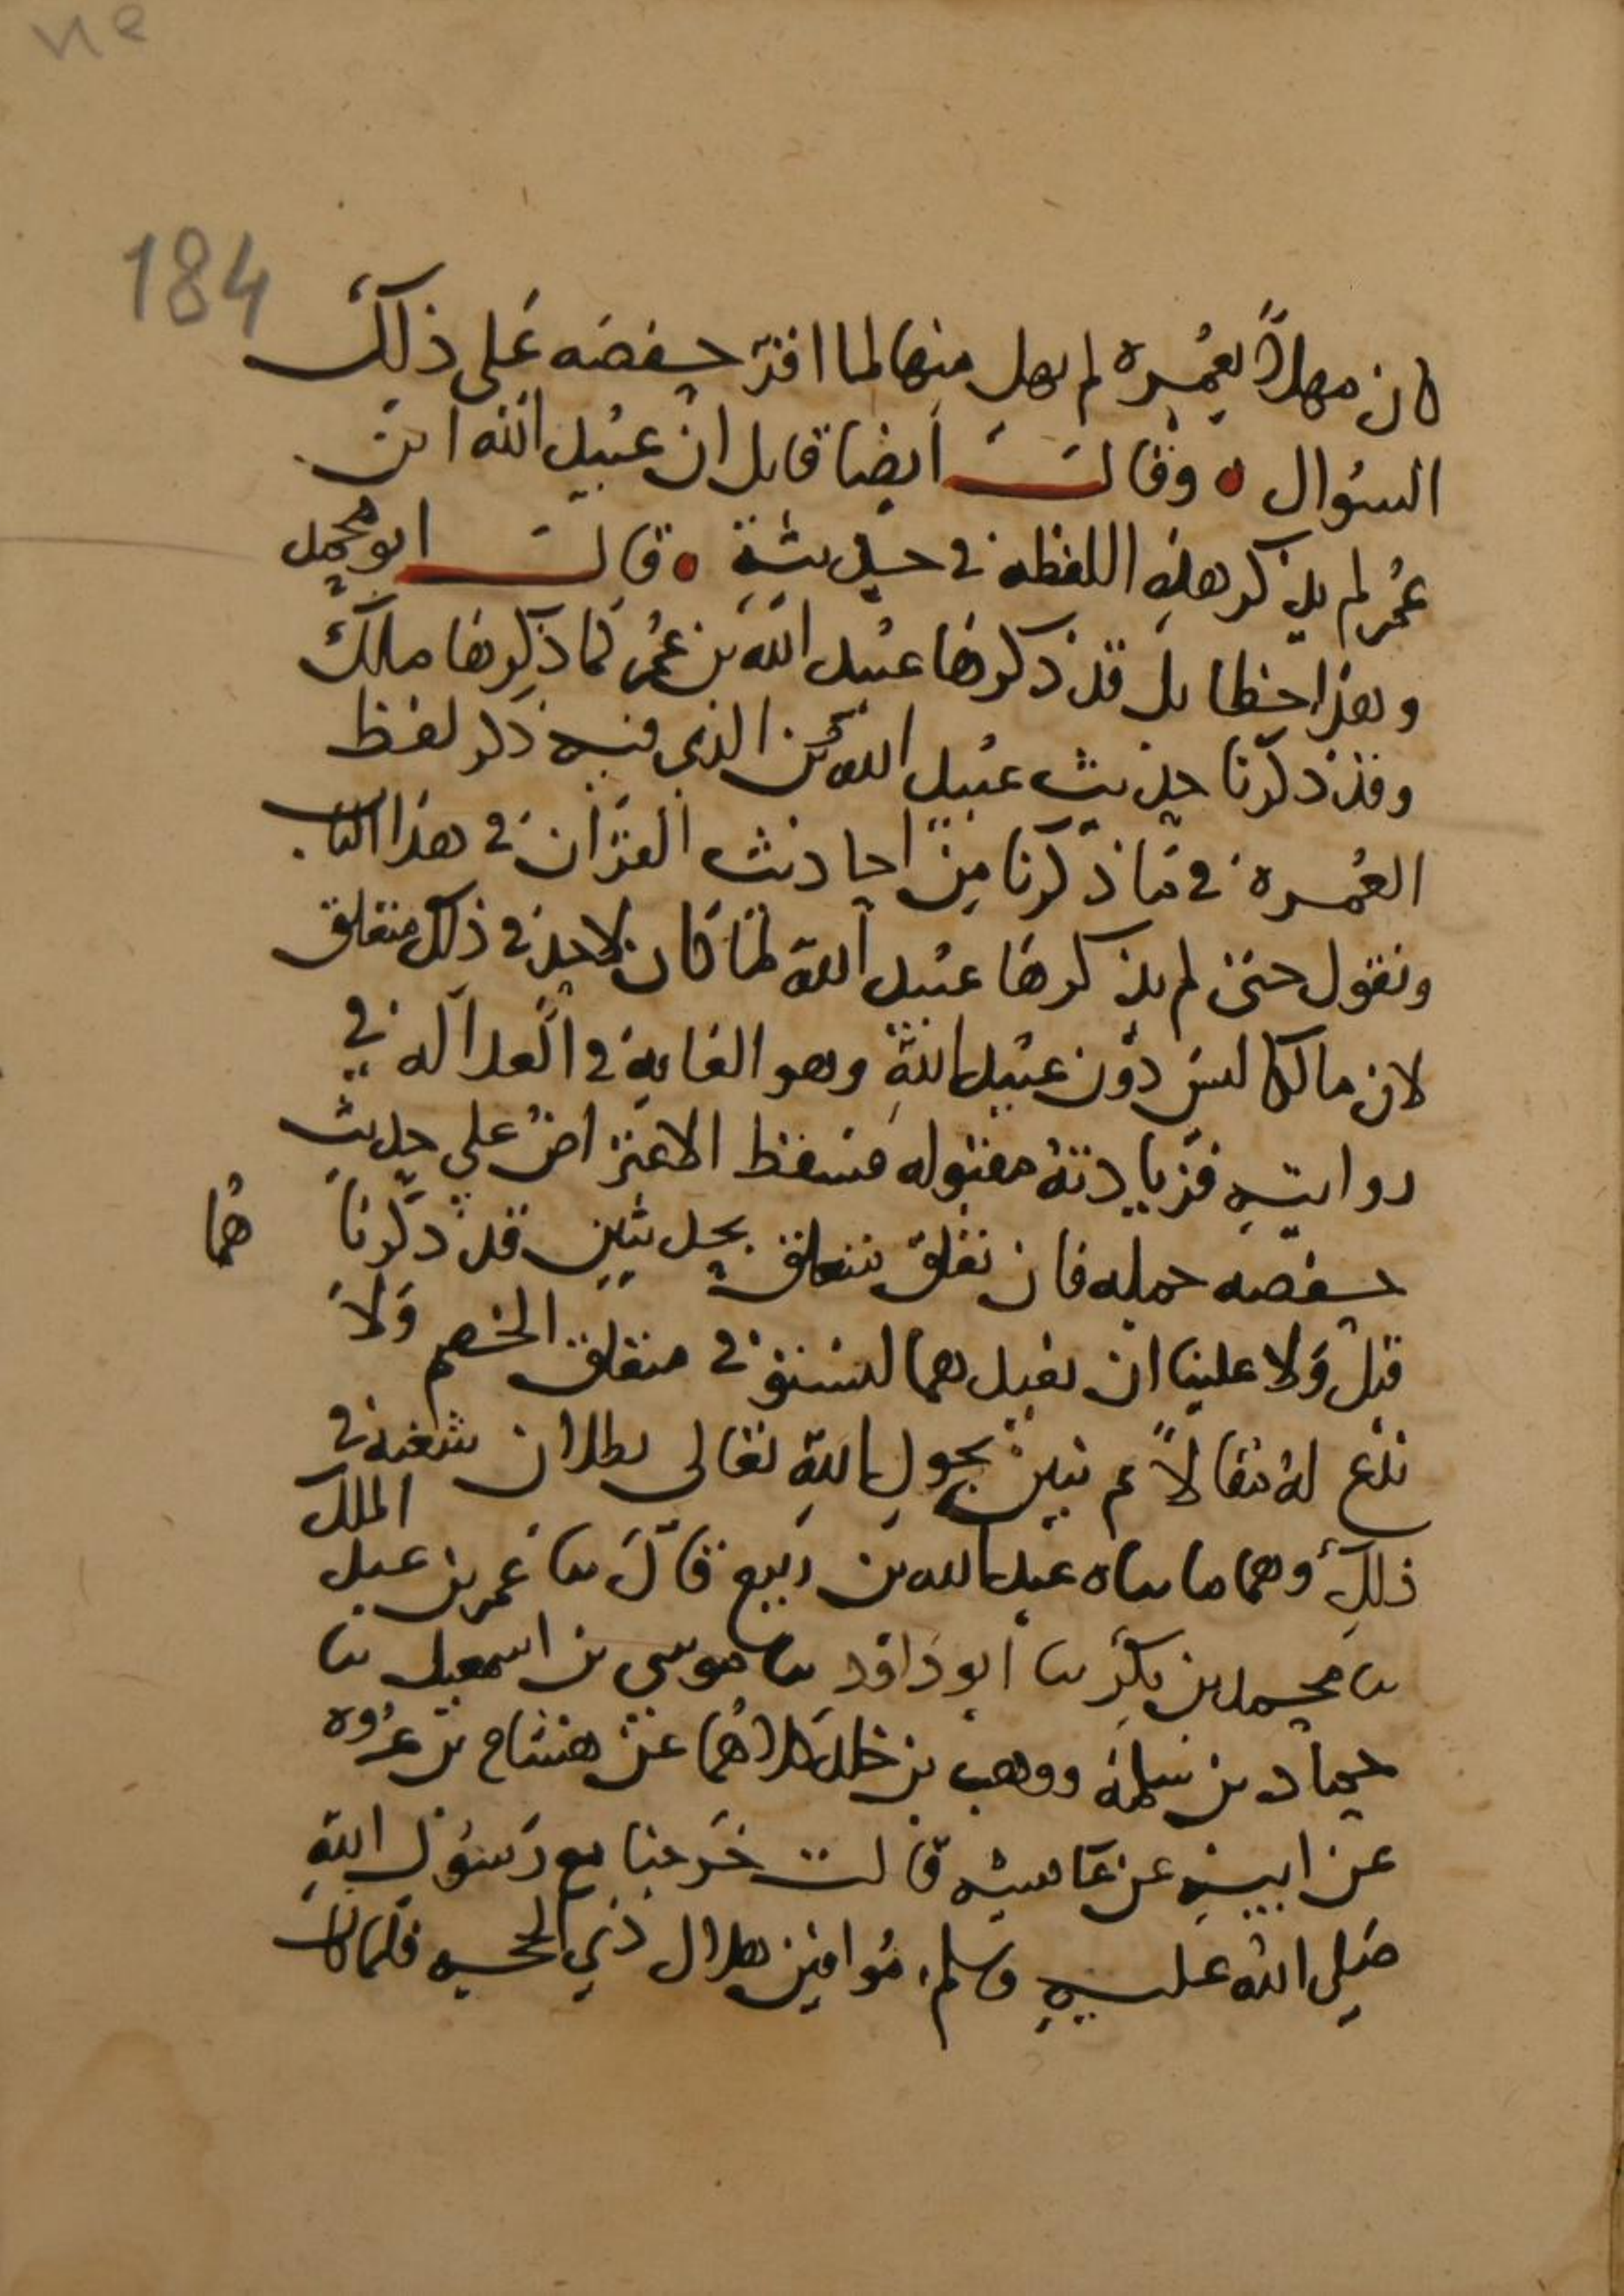 184
كان مهلا بعمرة لم يهل منها لما اقر حفصه على ذلك
السؤال وقال ايضا قايل ان عبيد الله ابن
عمر لم يذكر هذه اللفظه في حديثه قال ابو محمد
وهذا خطا بل قد ذكرها عبيد الله بن عمر كما ذكرها مالك
وقد ذكرنا حديث عبيد الله الذي فيه ذكر لفظ
العمرة في ما ذكرنا من احاديث القران في هذا الباب
ونقول حتى لم يذكرها عبيد الله لما كان لاحد في ذلك متعلق
لان مالكا ليس دون عبيد الله وهو الغاية في العدالة في
روايته فزيادته مقبوله فسقط الاعتراض على حديث
حفصه جمله فان تعلق متعلق بحديثين قد ذكرنا هما
قبل ولا علينا ان نعيدهما لنستوفي متعلق الخصم ولا
ندع له مقالا ثم نبين بحول الله تعالى بطلان شغبه في
ذلك وهما ما ثناه عبد الله بن ربيع قال ثنا عمر بن عبد الملك
ثنا محمد بن بكر ثنا ابو داود ثنا موسى بن اسمعيل ثنا
حماد بن سلمة ووهب بن خلد كلاهما عن هشام بن عروه
عن ابيه عن عايشه قالت خرجنا مع رسول الله
صلى الله عليه وسلم موافين هلال ذي الحجه فلما كان